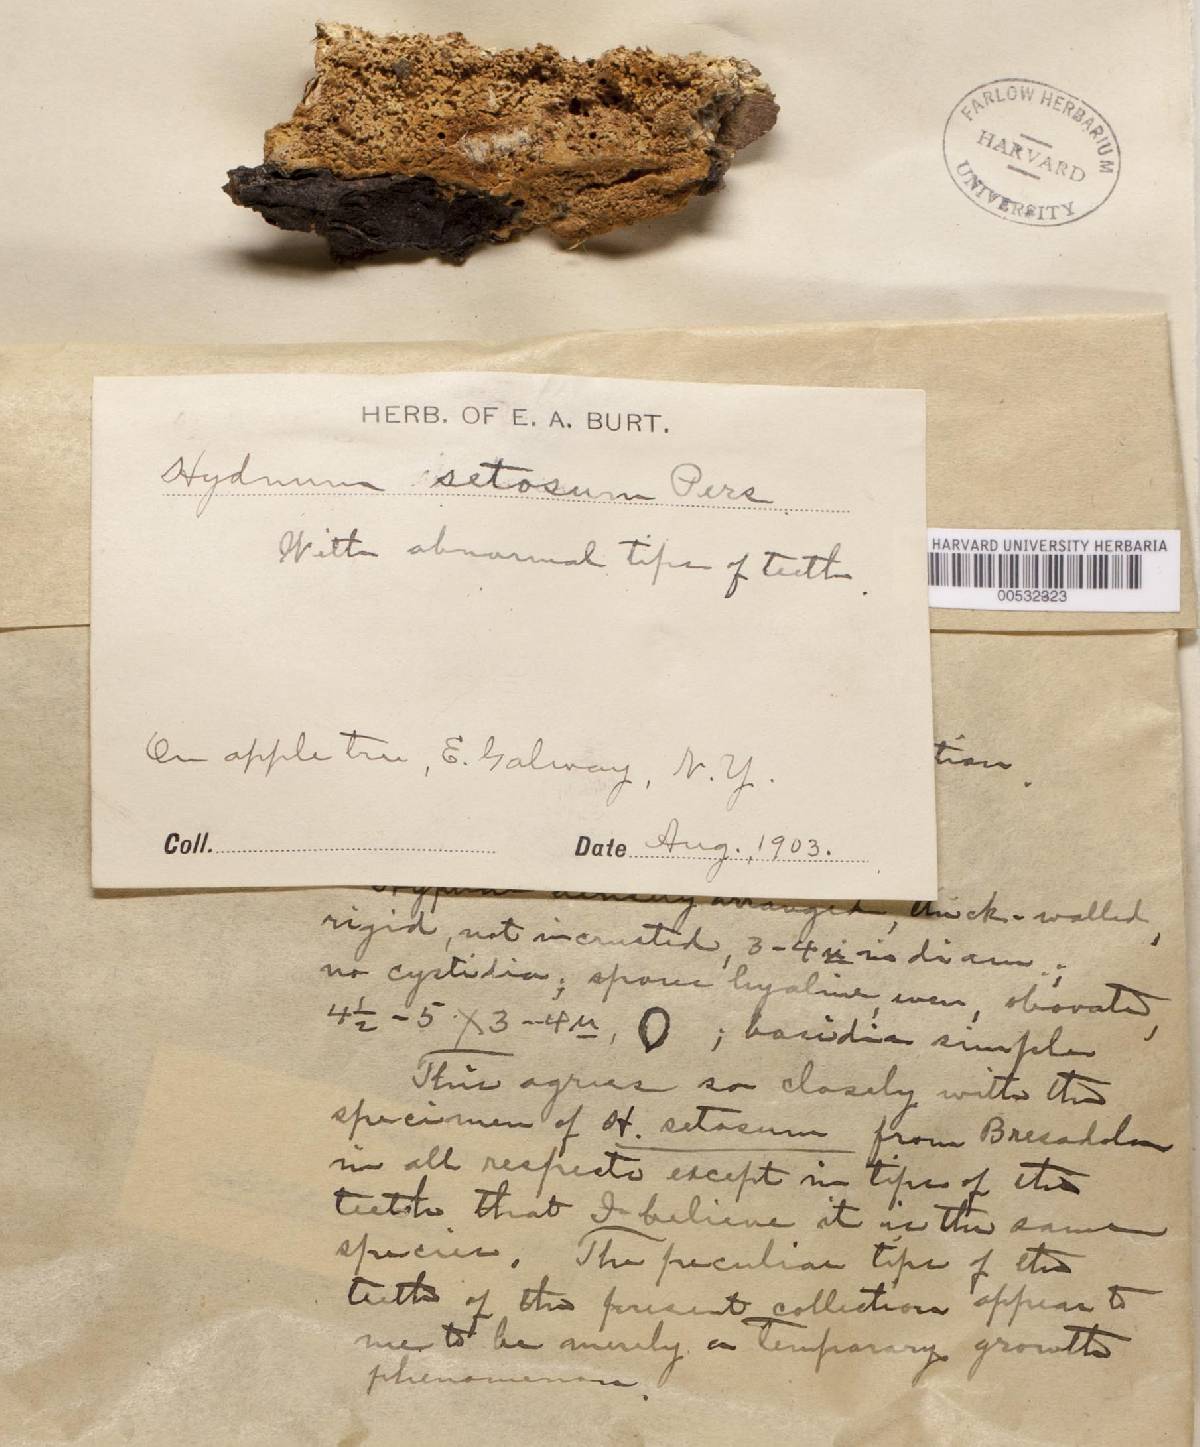 FARLOW HERBARIUM
HARVARD
UNIVERSITY
HERB. OF E. A. BURT.
Hydnum setosum Pers.
With abnormal tips of teeth.
HARVARD UNIVERSITY HERBARIA
00532323
On apple tree, E. Galway, N.Y.
tion.
Coll.
Date Aug., 1903.
densely arranged, thick-walled,
rigid, not incrusted, 3-4µ in diam.;
no cystidia; spores hyaline, even, obovate,
4½-5 X 3-4µ, ; basidia simple
This agrees so closely with the
specimen of H. setosum from Bresadola
in all respects except in tips of the
teeth that I believe it is the same
species. The peculiar tips of the
teeth of the present collection appear to
me to be merely a temporary growth
phenomenon.